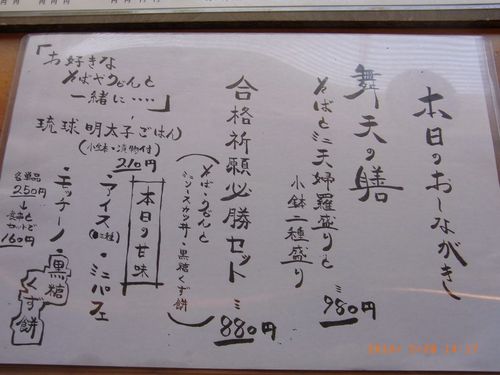 本日のおしながき
舞天の膳
そばとミニ天婦羅盛りと
小鉢二種盛り
980円
合格祈願必勝セット
880円
(そば・うどんと
ミニソースカツ丼・黒糖くず餅)
「お好きな
そばやうどんと
一緒に‥‥」
琉球明太子ごはん
(小鉢・漬物付)
210円
本日の甘味
・アイス(二種)・ミニパフェ
・モッチーノ・黒糖くず餅
各単品
250円
↓お食事と
セットで
160円